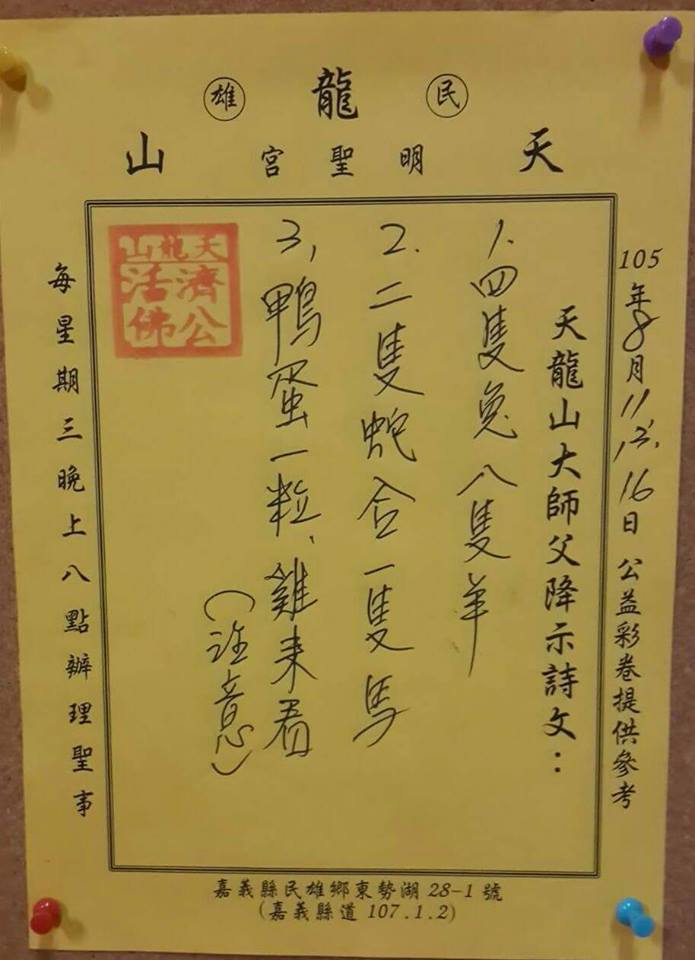 民 龍 雄
天 明聖宮 山
105年8月11,13,16日 公益彩卷提供參考
天龍山大師父降示詩文：
1. 四隻兔八隻羊
2. 二隻蛇合一隻馬
3, 鴨蛋一粒、雞来看
(注意)
天龍山
濟公
活佛
每星期三晚上八點辦理聖事
嘉義縣民雄鄉東勢湖28-1號
(嘉義縣道107.1.2)